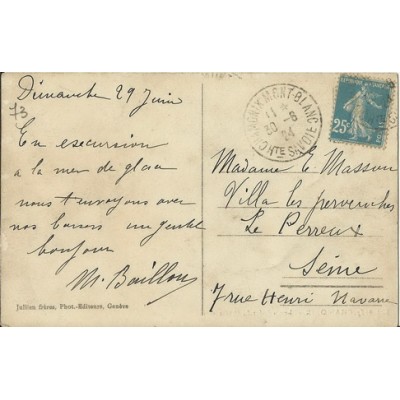 Dimanche 29 Juin
73
En excursion
a la mer de glace
nous t'envoyons avec
nos baisers un gentil
bonjour
M. Bouillon
Jullien frères, Phot.-Editeurs, Genève
CHAMONIX MONT-BLANC
11 *
30 - 6
24
HTE SAVOIE
25c
Madame E. Masson
Villa les pervenches
Le Perreux
Seine
7 rue Henri Navarre